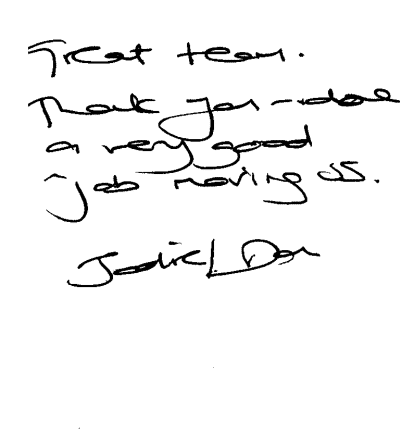 Great team.
Thank you - done
a very good
job moving us.